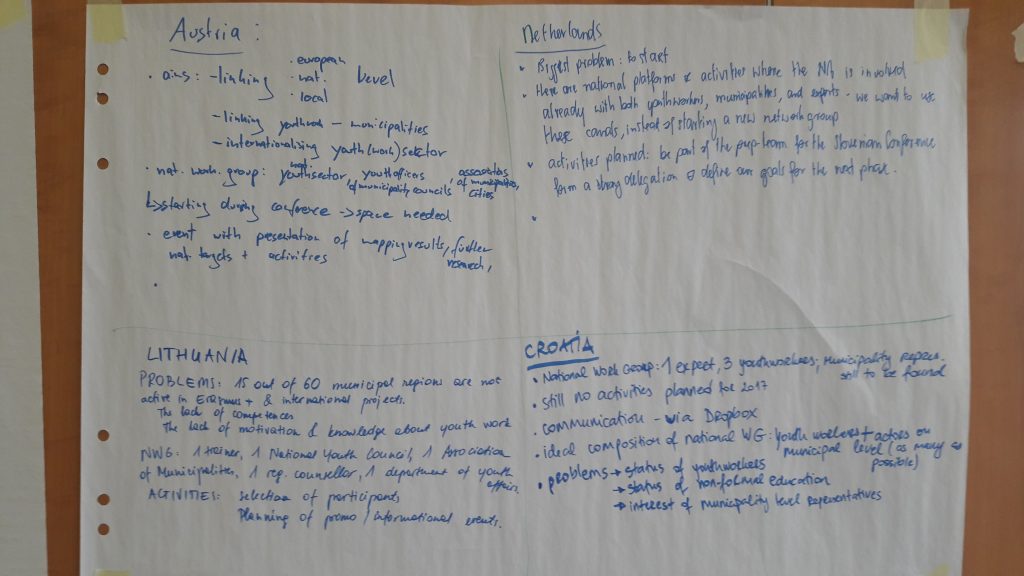 Austria :
• aims: - linking
• european
• nat. level
• local
- linking youthwork - municipalities
- internationalizing youth(work)sector
• nat. work. group: nat. youthsector, youthofficers of municipality councils, associations of municipalities, cities
↳ starting during conference → space needed
• event with presentation of mapping results, further research,
nat. targets + activities
•
Netherlands
• Biggest problem: to start
• There are national platforms & activities where the NA is involved
already with both youthworkers, municipalities, and experts. We want to use
these canals, instead of starting a new network group
• activities planned: be part of the prep-team for the Slovenian Conference
form a strong delegation & define our goals for the next phase.
•
LITHUANIA
PROBLEMS: 15 out of 60 municipal regions are not
active in Erasmus+ & international projects.
The lack of competences
The lack of motivation & knowledge about youth work
NWG: 1 trainer, 1 National Youth Council, 1 Association
of Municipalities, 1 reg. counsellor, 1 department of youth
affairs.
ACTIVITIES: selection of participants,
Planning of promo/informational events.
CROATIA
• National Work Group: 1 expert, 3 youthworkers; municipality repres.
still to be found
• Still no activities planned for 2017
• communication - via Dropbox
• ideal composition of national WG: youth workers + actors on
municipal level (as many as
possible)
• problems → status of youthworkers
→ status of nonformal education
→ interest of municipality level representatives